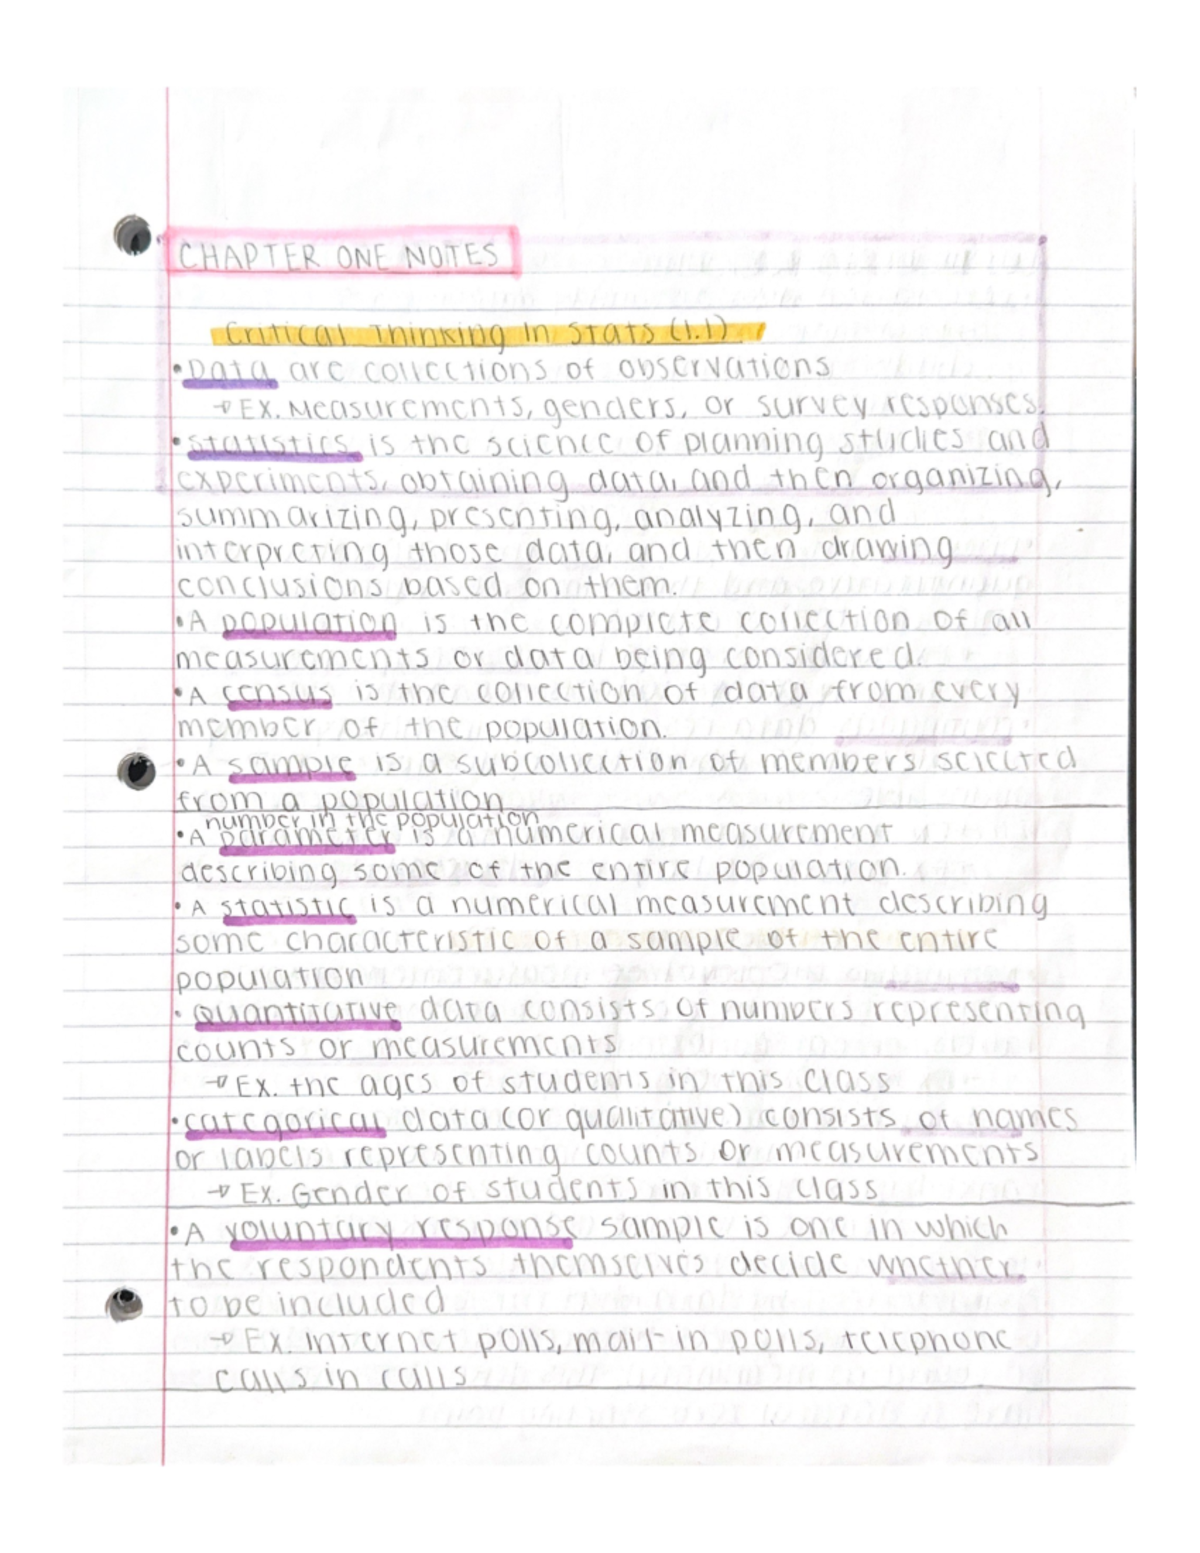 CHAPTER ONE NOTES
Critical Thinking In Stats (1.1)
•Data are collections of observations
→EX. Measurements, genders, or survey responses.
•Statistics is the science of planning studies and
experiments, obtaining data, and then organizing,
summarizing, presenting, analyzing, and
interpreting those data, and then drawing
conclusions based on them.
•A population is the complete collection of all
measurements or data being considered.
•A census is the collection of data from every
member of the population.
•A sample is a subcollection of members selected
from a population
number in the population
•A parameter is a numerical measurement
describing some of the entire population.
•A statistic is a numerical measurement describing
some characteristic of a sample of the entire
population
•quantitative data consists of numbers representing
counts or measurements
→EX. the ages of students in this class
•categorical data (or qualitative) consists of names
or labels representing counts or measurements
→Ex. Gender of students in this class
•A voluntary response sample is one in which
the respondents themselves decide whether
to be included
→Ex. Internet polls, mail-in polls, telephone
calls in calls